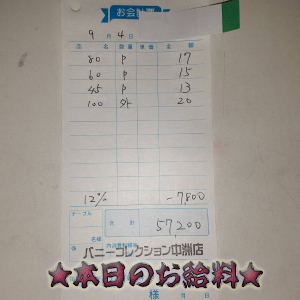 お会計票
9月4日
品名 数量 単価 金額
80 P 17
60 P 15
45 P 13
100 外 20
12% -7,800
テーブル
合計 57,200
係
名様
バニーコレクション中洲店
★本日のお給料★
様 月 日